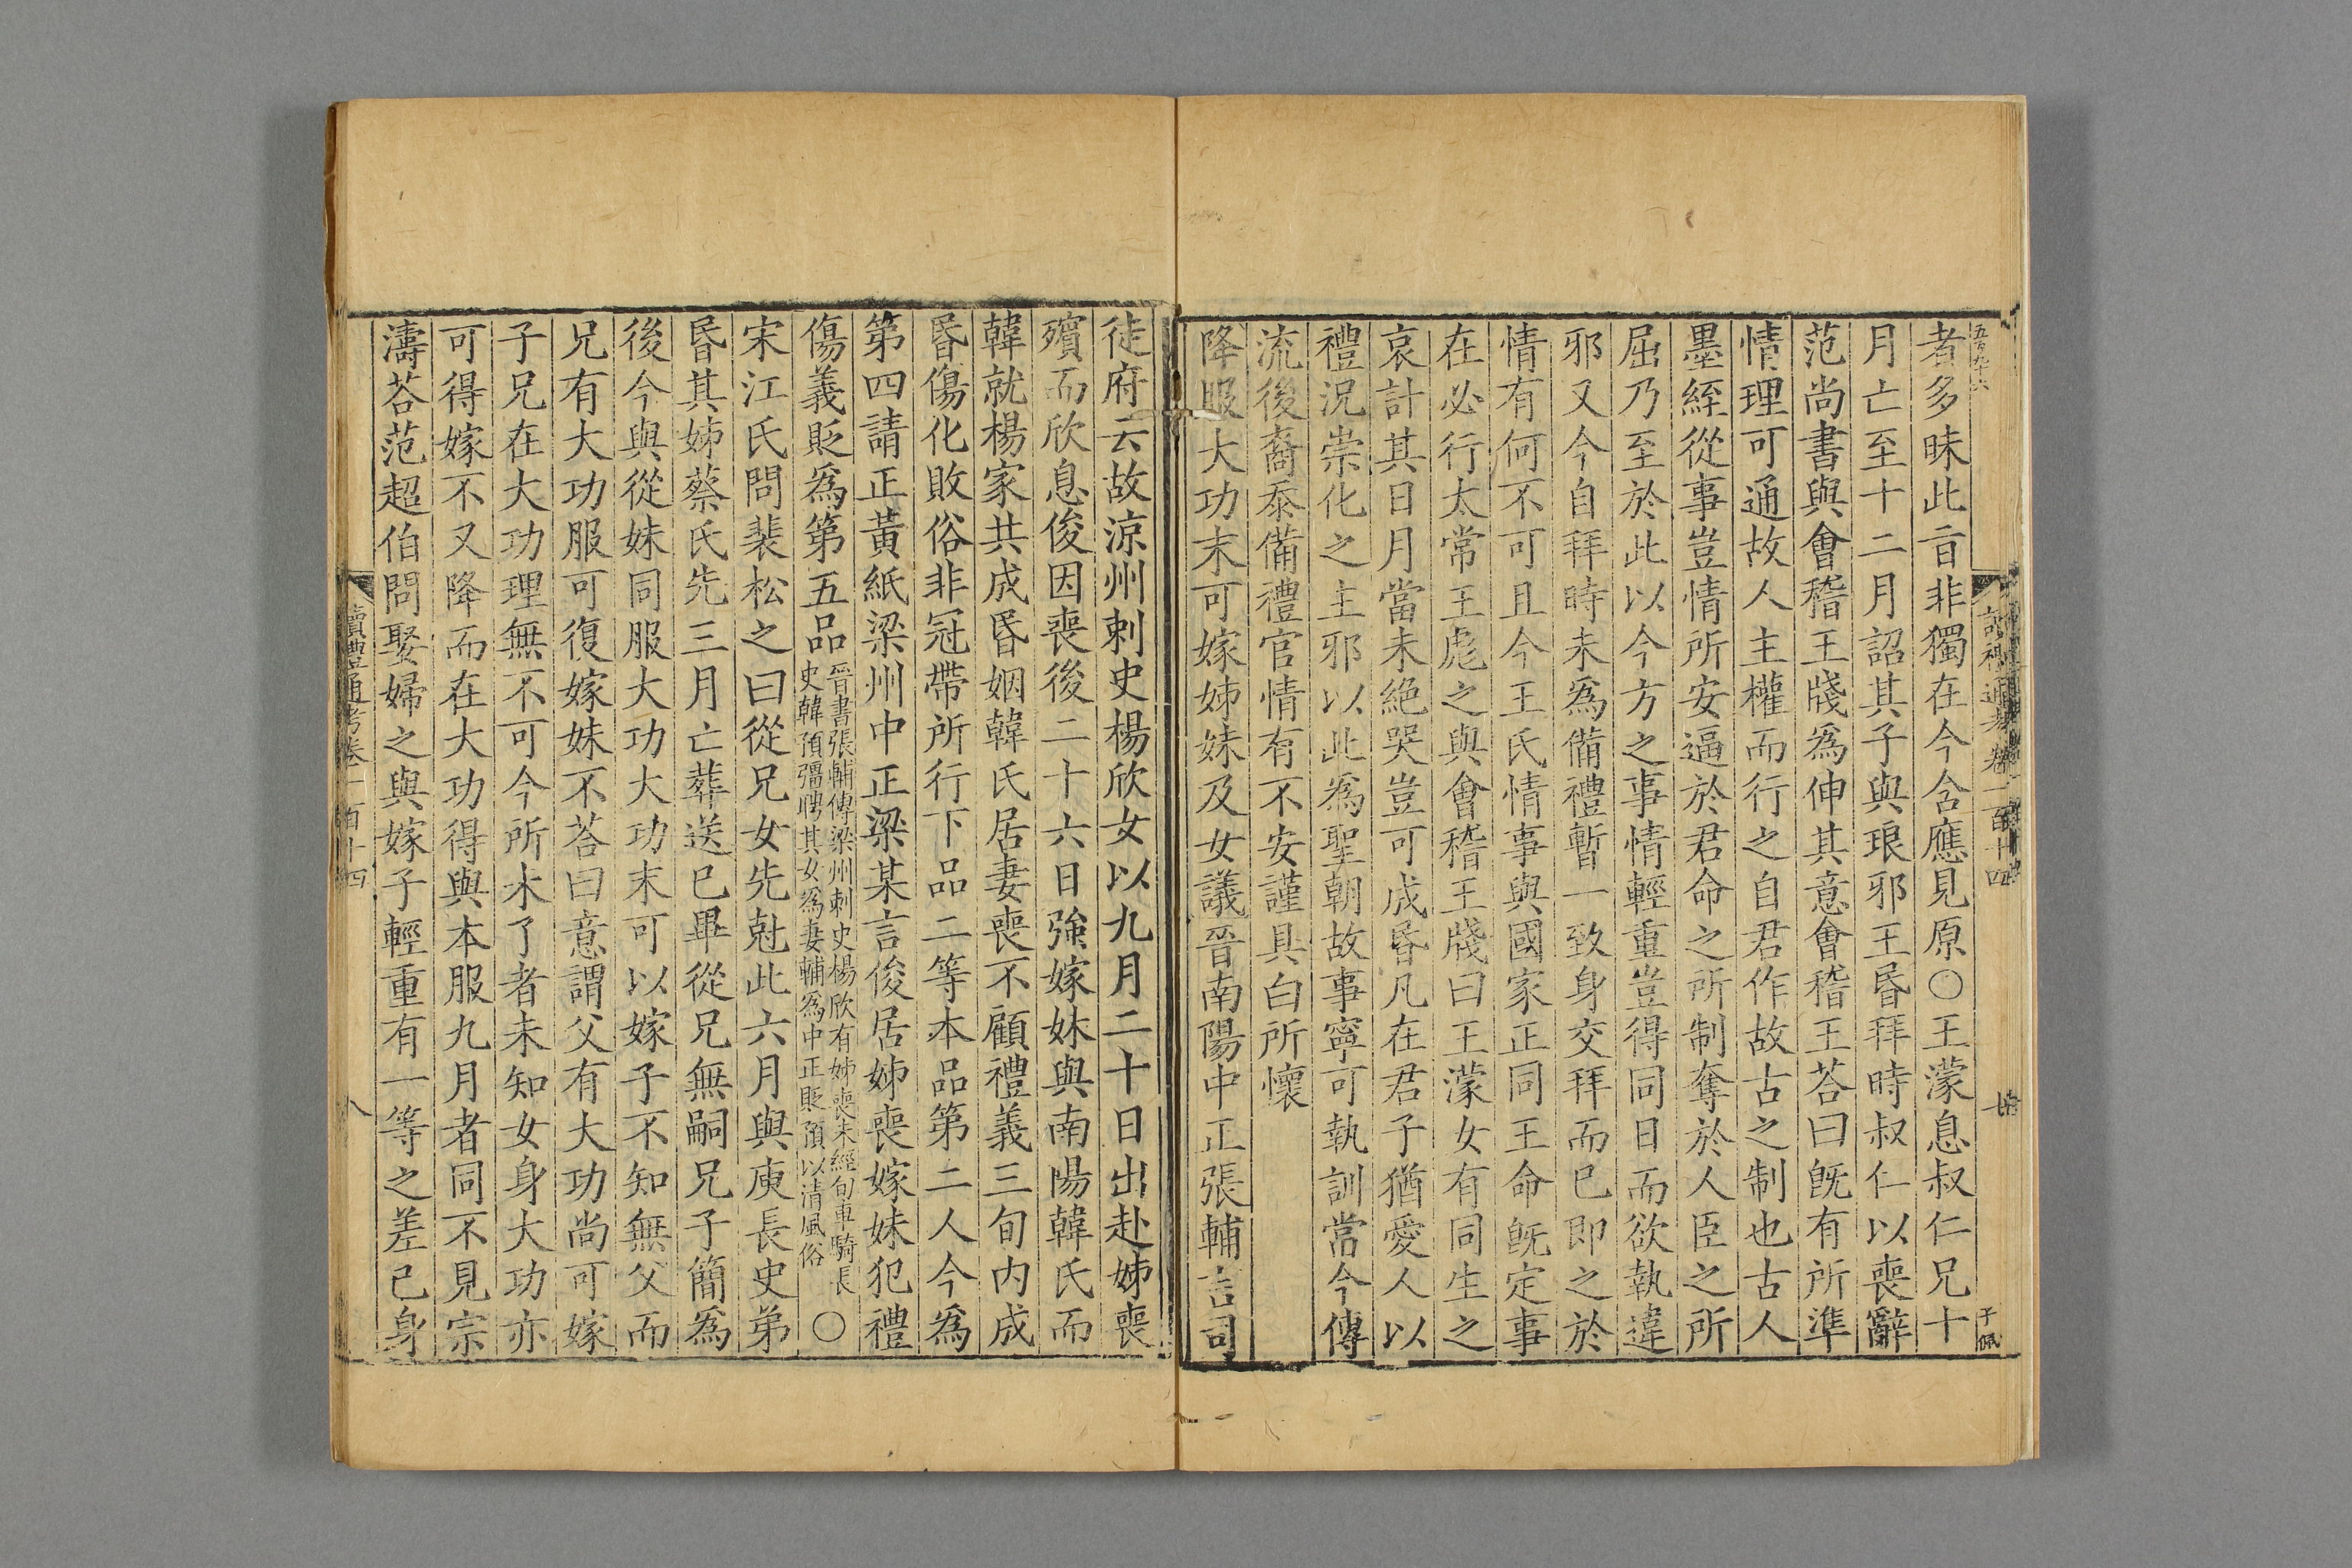 五百九十六
讀禮通考卷一百十四
七
子佩
者多昧此㫖非獨在今含應見原○王濛息叔仁兄十
月亡至十二月詔其子與琅邪王昏拜時叔仁以喪辭
范尚書與會稽王牋爲伸其意會稽王荅曰旣有所準
情理可通故人主權而行之自君作故古之制也古人
墨絰從事豈情所安逼於君命之所制奪於人臣之所
屈乃至於此以今方之事情輕重豈得同日而欲執違
邪又今自拜時未爲備禮暫一致身交拜而已即之於
情有何不可且今王氏情事與國家正同王命旣定事
在必行太常王彪之與會稽王牋曰王濛女有同生之
哀計其日月當未絶哭豈可成昏凡在君子猶愛人以
禮況崇化之主邪以此爲聖朝故事寧可執訓當今傳
流後裔忝備禮官情有不安謹具白所懷
降服大功末可嫁姊妹及女議晉南陽中正張輔言司
徒府云故涼州刺史楊欣女以九月二十日出赴姊喪
殯而欣息俊因喪後二十六日強嫁妹與南陽韓氏而
韓就楊家共成昏姻韓氏居妻喪不顧禮義三旬內成
昏傷化敗俗非冠帶所行下品二等本品第二人今爲
第四請正黃紙梁州中正梁某言俊居姊喪嫁妹犯禮
傷義貶爲第五品晉書張輔傳梁州刺史楊欣有姊喪未經旬車騎長
史韓預彊聘其女爲妻輔爲中正貶預以清風俗○
宋江氏問裴松之曰從兄女先尅此六月與庾長史弟
昏其姊蔡氏先三月亡葬送已畢從兄無嗣兄子簡爲
後今與從妹同服大功大功末可以嫁子不知無父而
兄有大功服可復嫁妹不荅曰意謂父有大功尚可嫁
子兄在大功理無不可今所未了者未知女身大功亦
可得嫁不又降而在大功得與本服九月者同不見宗
濤荅范超伯問娶婦之與嫁子輕重有一等之差己身
讀禮通考卷一百十四
八